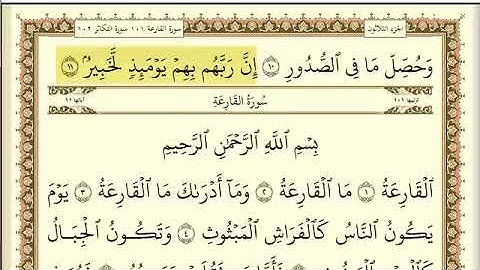 سورة القارعة ١٠١ سورة التكاثر ١٠٢ الجزء الثلاثون
وَحُصِّلَ مَا فِى ٱلصُّدُورِ ١٠ إِنَّ رَبَّهُم بِهِمْ يَوْمَئِذٍ لَّخَبِيرٌۢ ١١
ترتيبها ١٠١ سُورَةُ القَارِعَةِ آياتها ١١
بِسْمِ ٱللَّهِ ٱلرَّحْمَٰنِ ٱلرَّحِيمِ
ٱلْقَارِعَةُ ١ مَا ٱلْقَارِعَةُ ٢ وَمَآ أَدْرَىٰكَ مَا ٱلْقَارِعَةُ ٣ يَوْمَ
يَكُونُ ٱلنَّاسُ كَٱلْفَرَاشِ ٱلْمَبْثُوثِ ٤ وَتَكُونُ ٱلْجِبَالُ